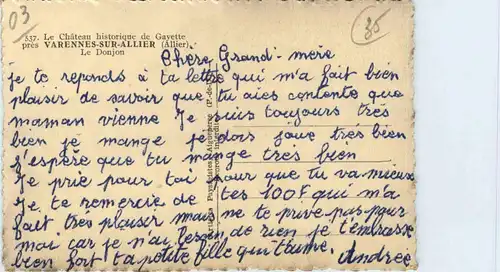 03
85
537. Le Château historique de Gayette
près VARENNES-SUR-ALLIER (Allier)
Le Donjon
Chère Grand-mère
je te reponds à ta lettre qui m'a fait bien
plaisir de savoir que tu aies contente que
maman vienne Je suis toujours très
bien je mange je dors joue très bien
j'espère que tu mange très bien
Je prie pour toi pour que tu va mieux
Je te remercie de tes 100F qui m'a
fait très plaisir mais ne te prive pas pour
moi car je n'ai besoin de rien je t'embrasse
bien fort ta petite fille qui t'aime. Andrée